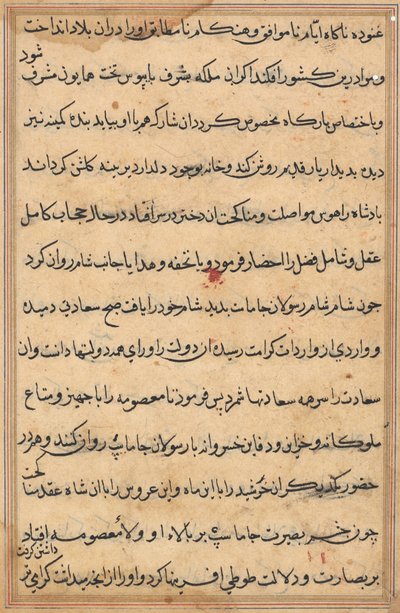 غنوده ناکاه ایام ناموافق و هنکام نامطابق اورا دران بلاد انداخت
شود
و موادرین کشور افکند اکر ان ملکه بشرف پابوس تخت همایون مشرف
و باختصاص بارکاه مخصوص کردد ان شارک هم با او بیاید بنده کمینه نیز
دیده بدیدار یار قدیم روشن کند و خانه بوجود دلدار دیرینه کلشن کرداند
پادشاه را هوس مواصلت و مناکحت ان دختر در سر افتاد در حال حجاب کامل
عقل و شامل فضل را احضار فرمود و با تحفه و هدایا جانب شام روان کرد
چون شاه شام رسولان جاماسپ بدید شاه خود را یافت صبح سعادتی دمیده
و واردی از واردات کرامت رسیده ان دولت را ورای همه دولتها دانست و ان
سعادت را سرهمه سعادتها شمرد پس فرمود تا معصومه را با جهیز و متاع
ملوکانه و خزاین و دفاین خسروانه با رسولان جاماسپ روان کنند و هم در
حضور یکدیکر ان خرشید را با این ماه و این عروس را با ان شاه عقد مناکحت
چون چشم بصیرت جاماسپ بر بالاء او و لاء معصومه افتاد
داشتن کرفت
بر بصارت و دلالت طوطی افرینها کرد و او را از انچه میداشت کرامی تر